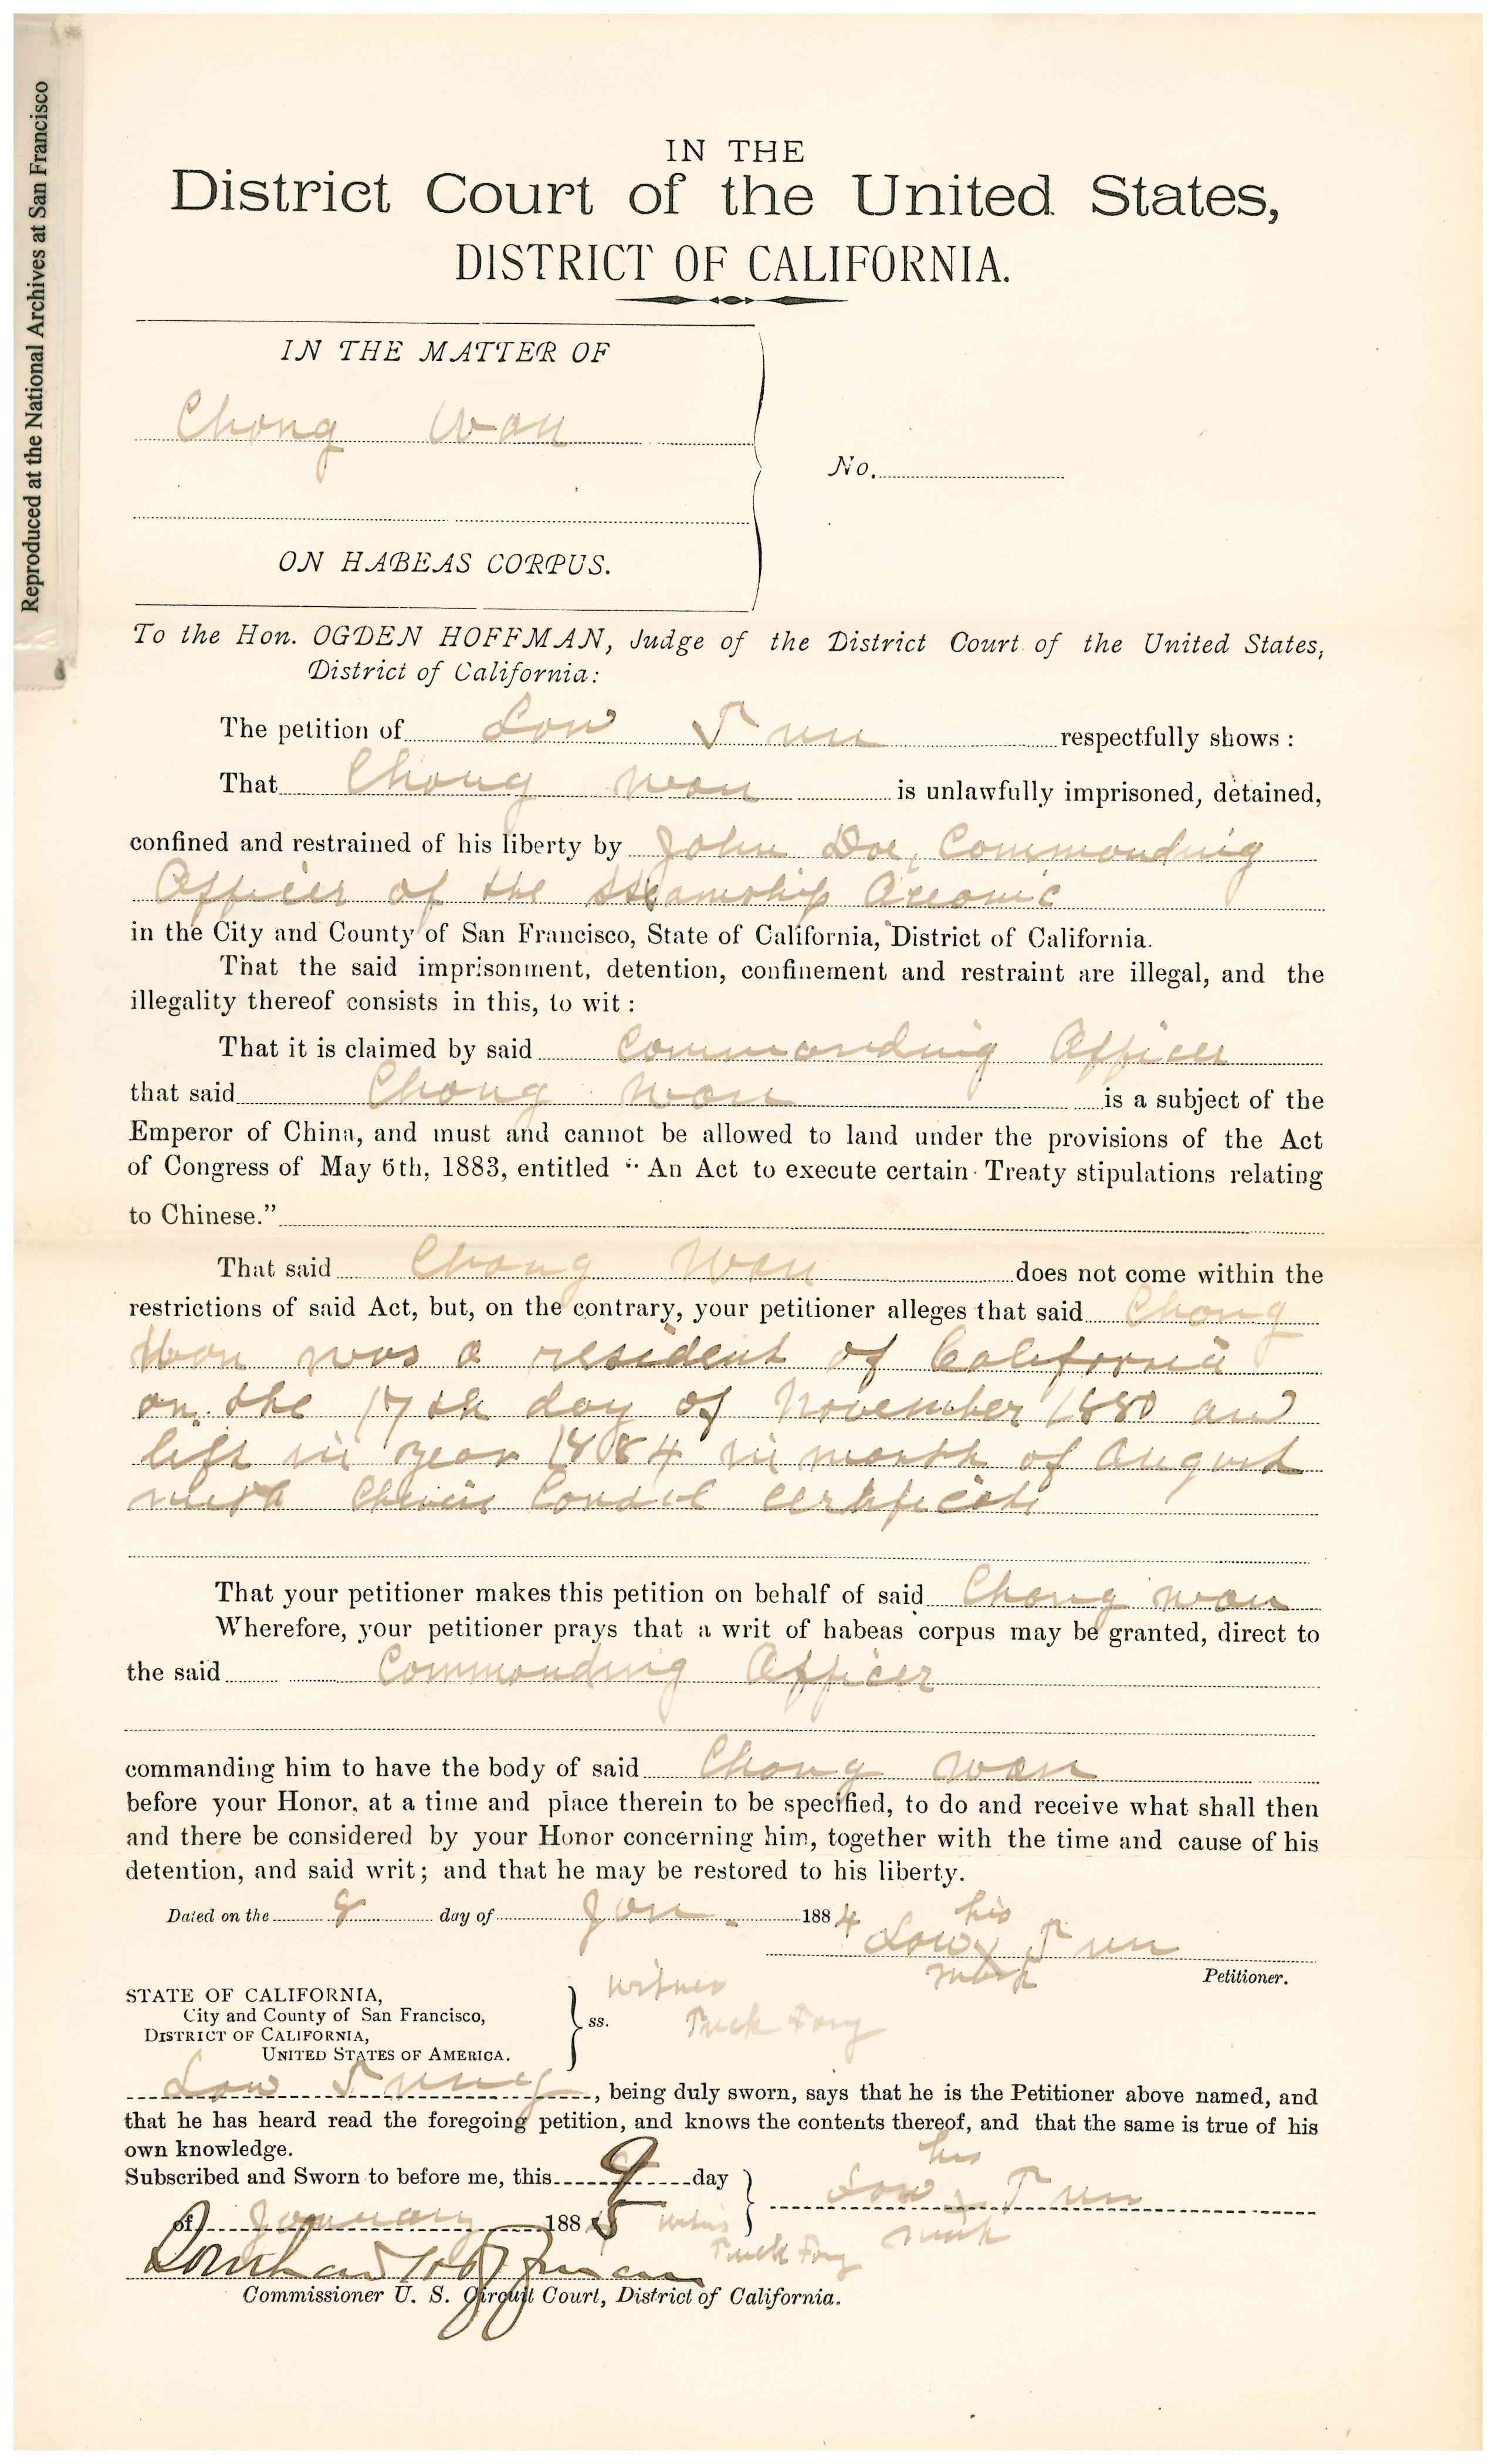 Reproduced at the National Archives at San Francisco
IN THE
District Court of the United States,
DISTRICT OF CALIFORNIA.
IN THE MATTER OF
Chong Wan
No.
ON HABEAS CORPUS.
To the Hon. OGDEN HOFFMAN, Judge of the District Court of the United States,
District of California:
The petition of Low Tun respectfully shows:
That Chong Wan is unlawfully imprisoned, detained,
confined and restrained of his liberty by John Doe, Commanding
Officer of the Steamship Oceanic
in the City and County of San Francisco, State of California, District of California.
That the said imprisonment, detention, confinement and restraint are illegal, and the
illegality thereof consists in this, to wit:
That it is claimed by said Commanding Officer
that said Chong Wan is a subject of the
Emperor of China, and must and cannot be allowed to land under the provisions of the Act
of Congress of May 6th, 1883, entitled "An Act to execute certain Treaty stipulations relating
to Chinese."
That said Chong Wan does not come within the
restrictions of said Act, but, on the contrary, your petitioner alleges that said Chong
Wan was a resident of California
on the 17th day of November 1880 and
left in year 1884 in month of August
with Certificate
That your petitioner makes this petition on behalf of said Chong Wan
Wherefore, your petitioner prays that a writ of habeas corpus may be granted, direct to
the said Commanding Officer
commanding him to have the body of said Chong Wan
before your Honor, at a time and place therein to be specified, to do and receive what shall then
and there be considered by your Honor concerning him, together with the time and cause of his
detention, and said writ; and that he may be restored to his liberty.
Dated on the 8 day of Jan. 1884
his
Low x Tun
mark
Petitioner.
Witness
Tuck Fong
STATE OF CALIFORNIA,
City and County of San Francisco,
DISTRICT OF CALIFORNIA,
UNITED STATES OF AMERICA.
ss.
Low Tung, being duly sworn, says that he is the Petitioner above named, and
that he has heard read the foregoing petition, and knows the contents thereof, and that the same is true of his
own knowledge.
Subscribed and Sworn to before me, this 9 day
of January 1885
his
Low x Tun
mark
Tuck Fong
Commissioner U. S. Circuit Court, District of California.